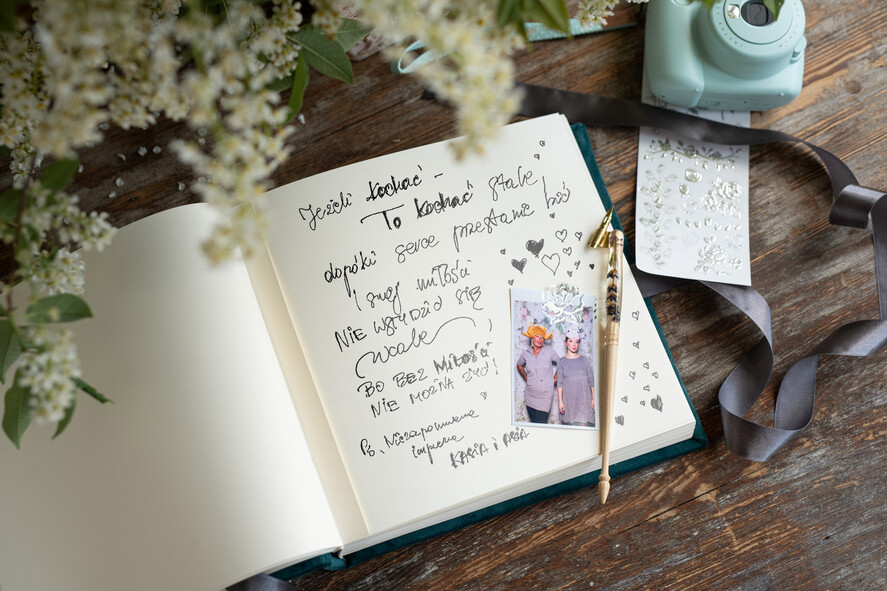 Jeżeli kochać -
To kochać stale,
dopóki serce przestanie bić
I swej miłości
NIE WSTYDZIĆ SIĘ
wcale,
BO BEZ Miłości
NIE MOŻNA ŻYĆ!
Ps. Niezapomniana
impreza
KASIA i ASIA